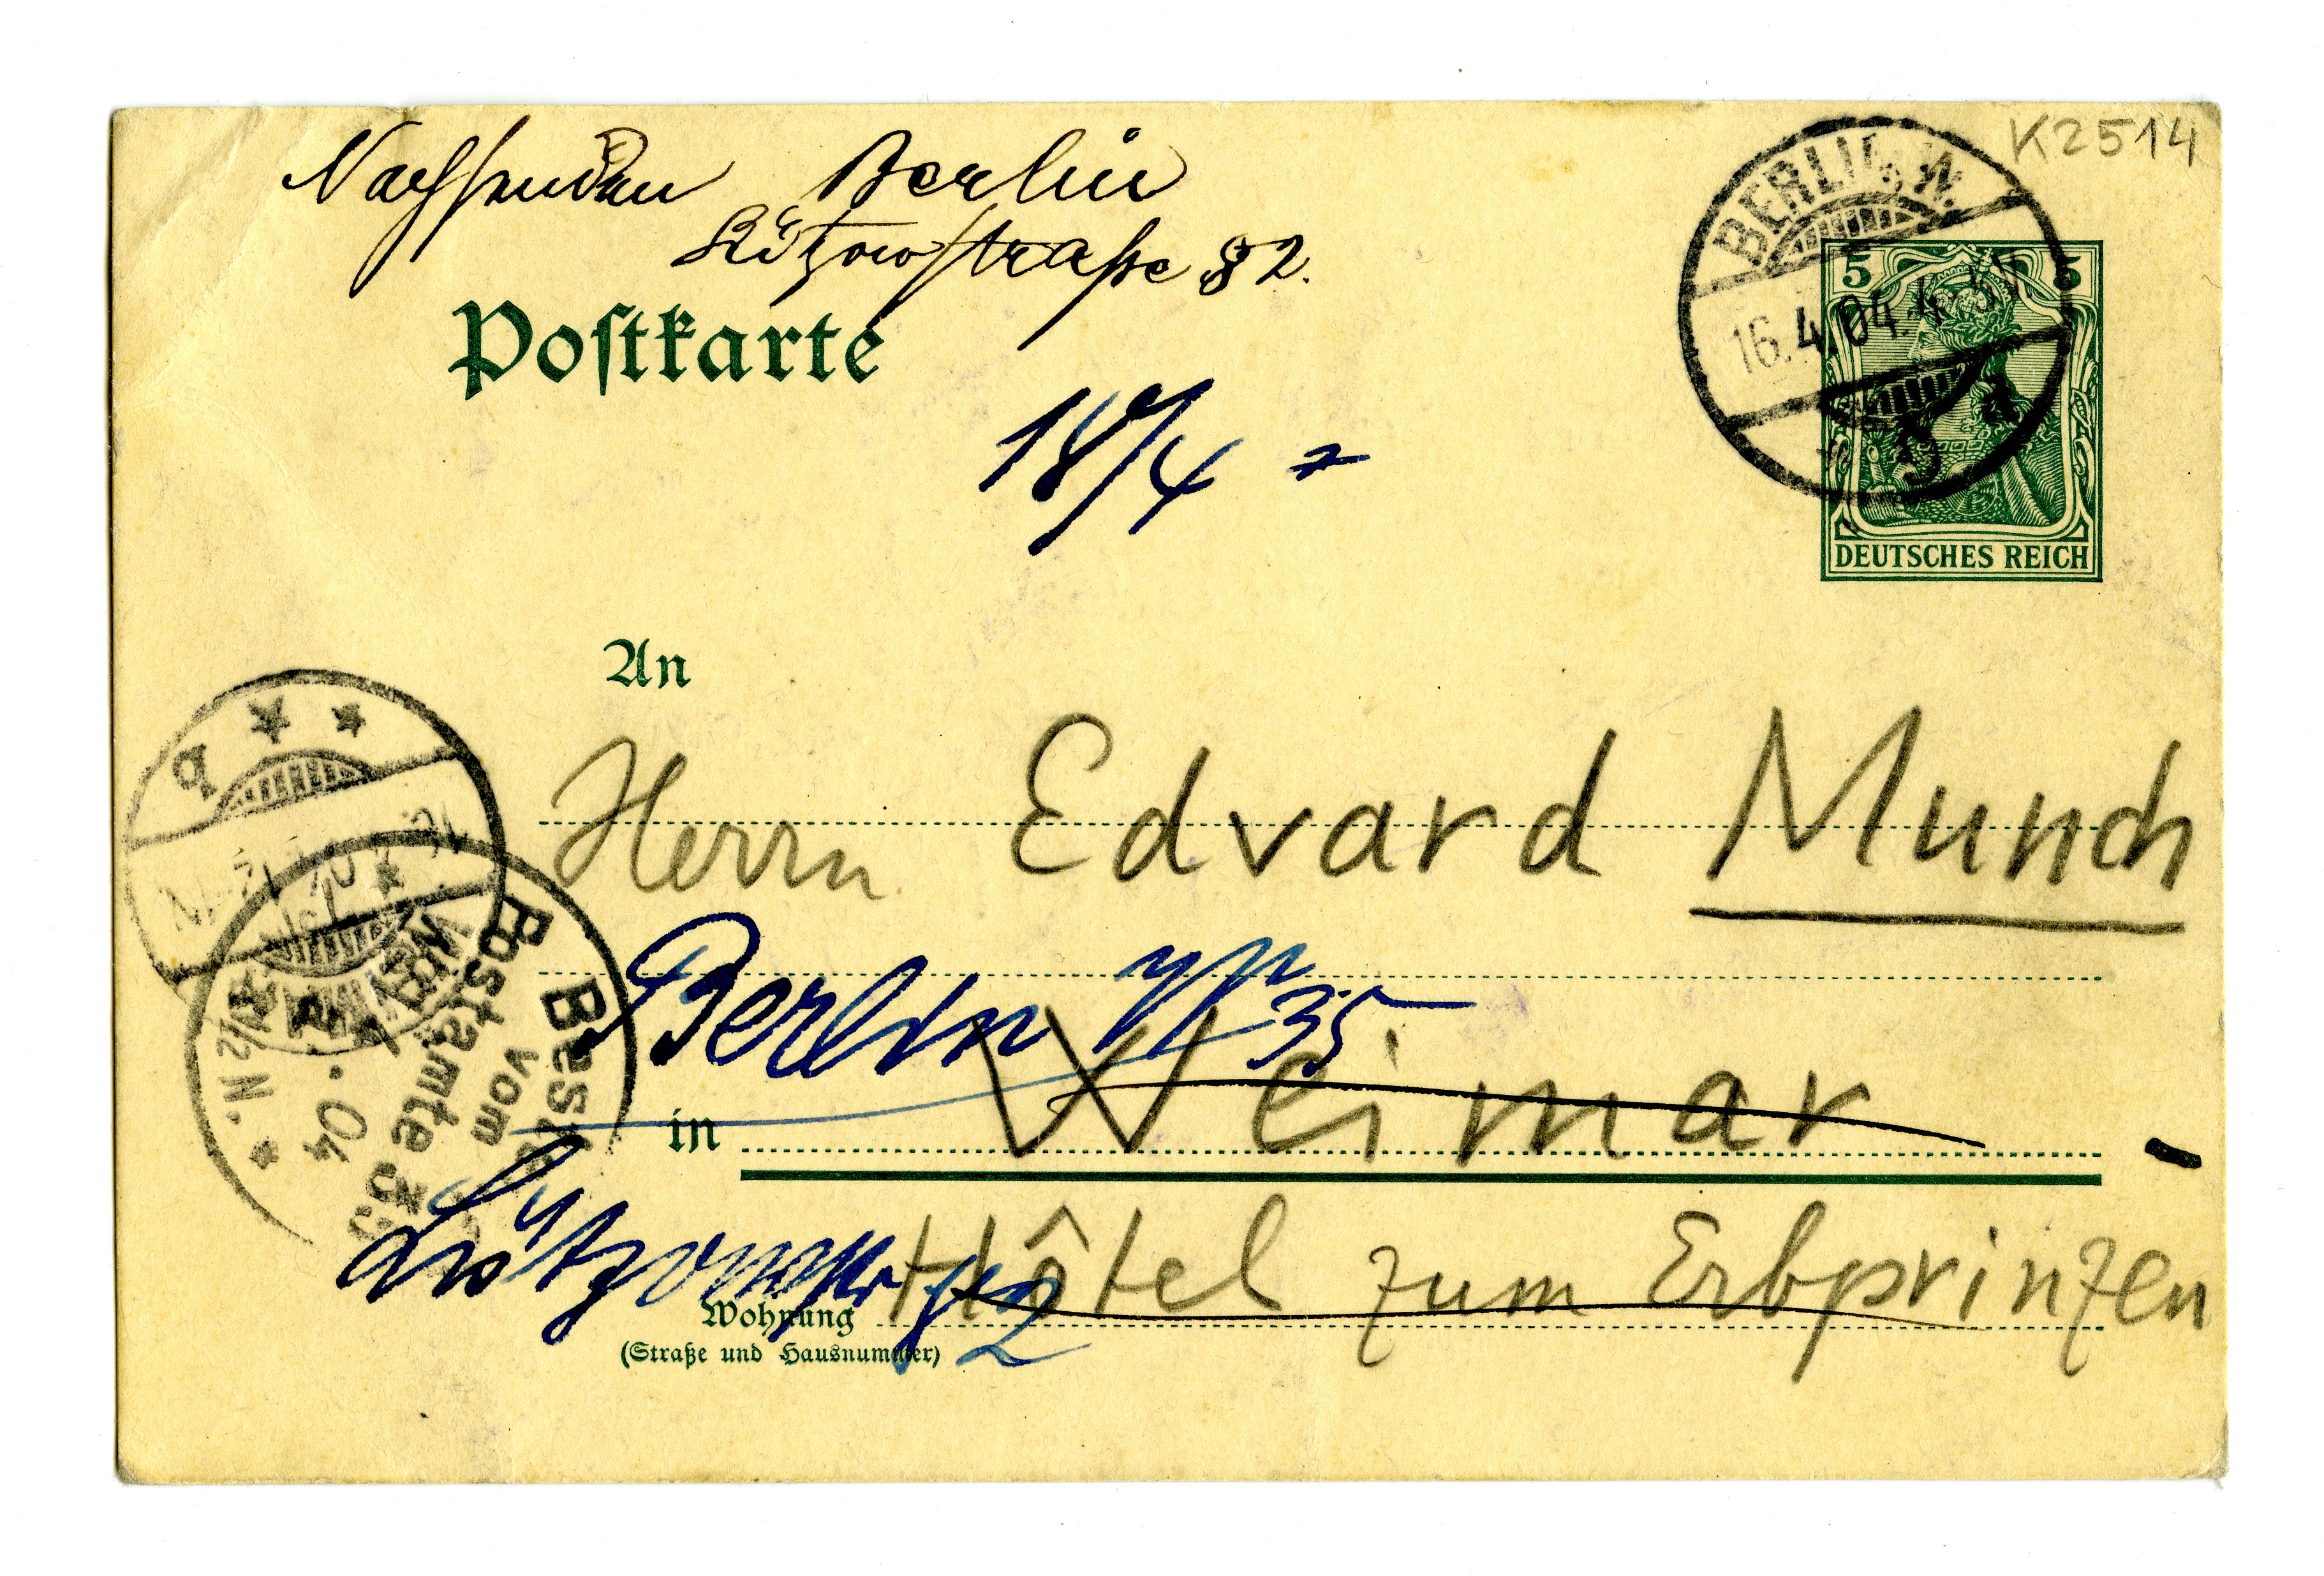 K2514
Nachsenden Berlin
Lützowstraße 82.
Postkarte
BERLIN, W.
16.4.04.4-5N
9 a
5 5
DEUTSCHES REICH
18/4
An
Herrn Edvard Munch
Berlin W 35
in Weimar
Lützowstr 82
Hôtel zum Erbprinzen
Wohnung
(Straße und Hausnummer)
Bestellt
vom
Postamte 35
.04
1/2 N.